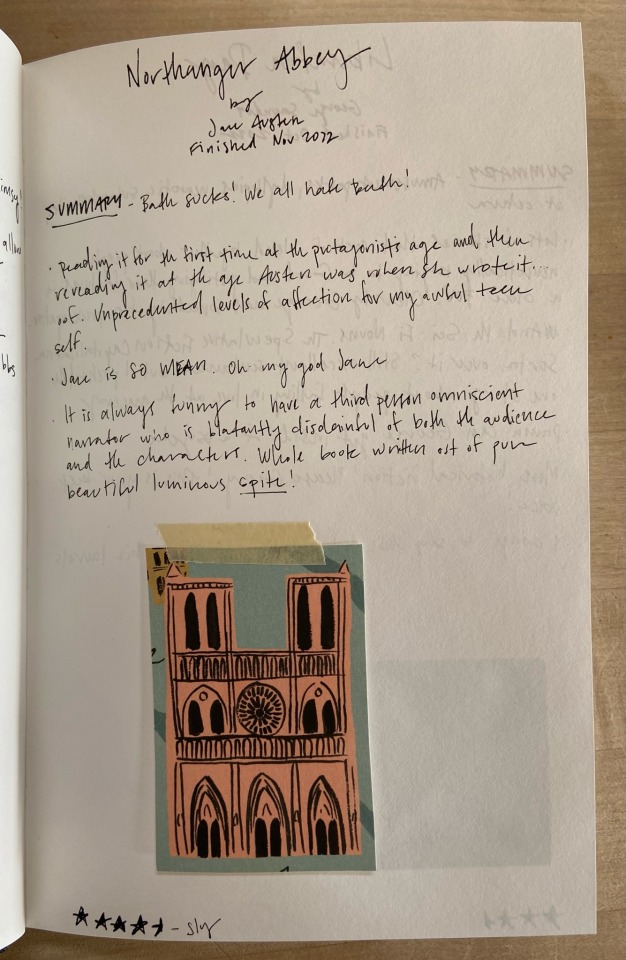 Northanger Abbey
by
Jane Austen
Finished Nov 2022
SUMMARY - Bath sucks! We all hate bath!
· Reading it for the first time at the protagonist's age and then
rereading it at the age Austen was when she wrote it...
oof. Unprecedented levels of affection for my awful teen
self.
· Jane is SO MEAN. Oh my god Jane
· It is always funny to have a third person omniscient
narrator who is blatantly disdainful of both the audience
and the characters. Whole book written out of pure
beautiful luminous spite!